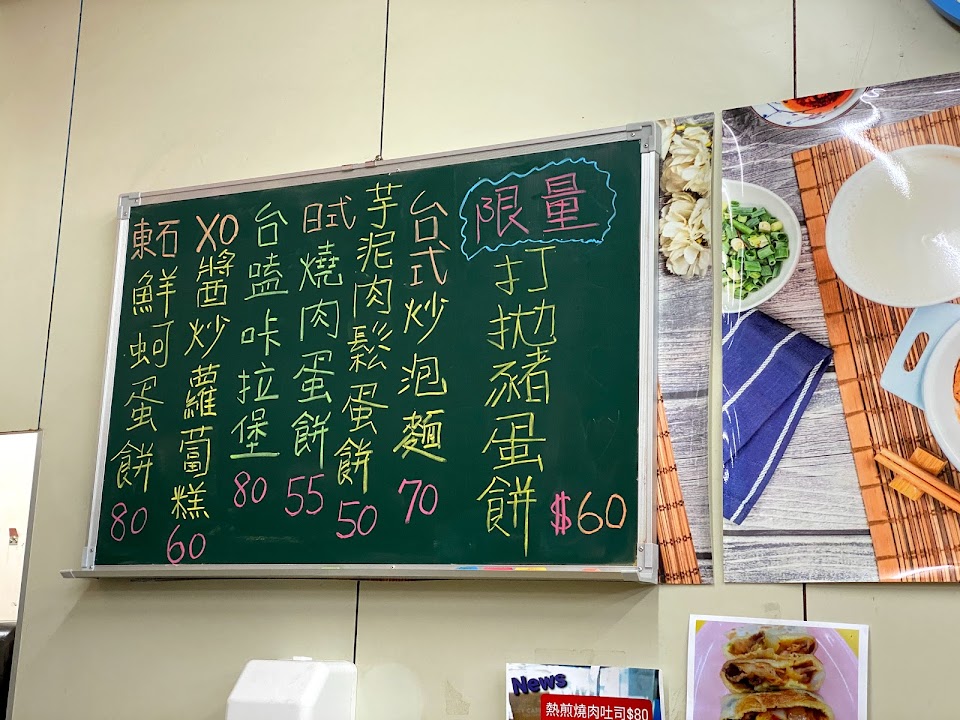 限量
打拋豬蛋餅 $60
台式炒泡麵 70
芋泥肉鬆蛋餅 50
日式燒肉蛋餅 55
台嗑咔拉堡 80
XO醬炒蘿蔔糕 60
東石鮮蚵蛋餅 80
News
熱煎燒肉吐司$80